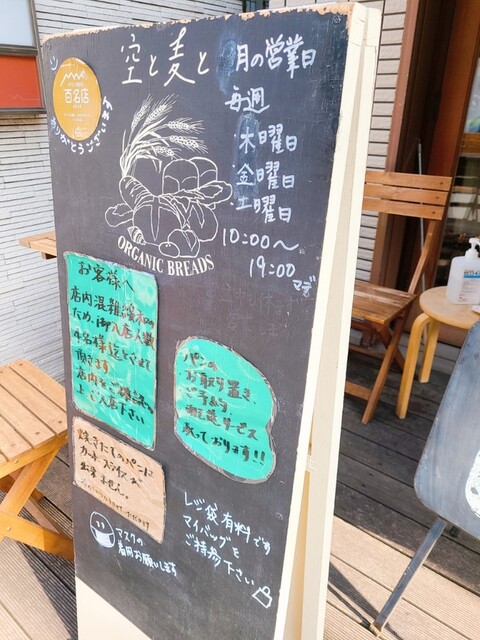 空と麦と
月の営業日
毎週
木曜日
金曜日
土曜日
10:00〜
19:00マデ
百名店
ありがとうございます
ORGANIC BREADS
お客様へ
店内混雑緩和の
ため、御入店人数
4名様迄とさせて
頂きます。
店内をご確認の
上、ご入店下さい
パンの
お取り置き、
ご予約
サービス
承っております!!
焼きたてのパンは
カット・スライスが
出来ません。
レジ袋有料です
マイバッグを
ご持参下さい
マスクの
着用お願いします